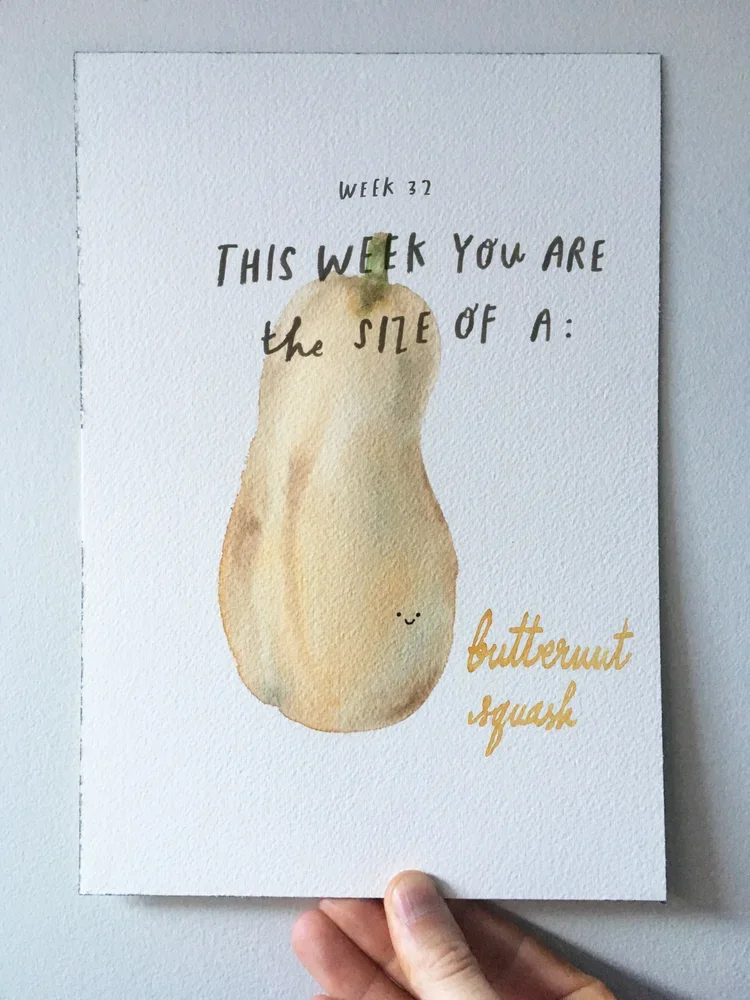 WEEK 32
THIS WEEK YOU ARE
the SIZE OF A:
butternut
squash